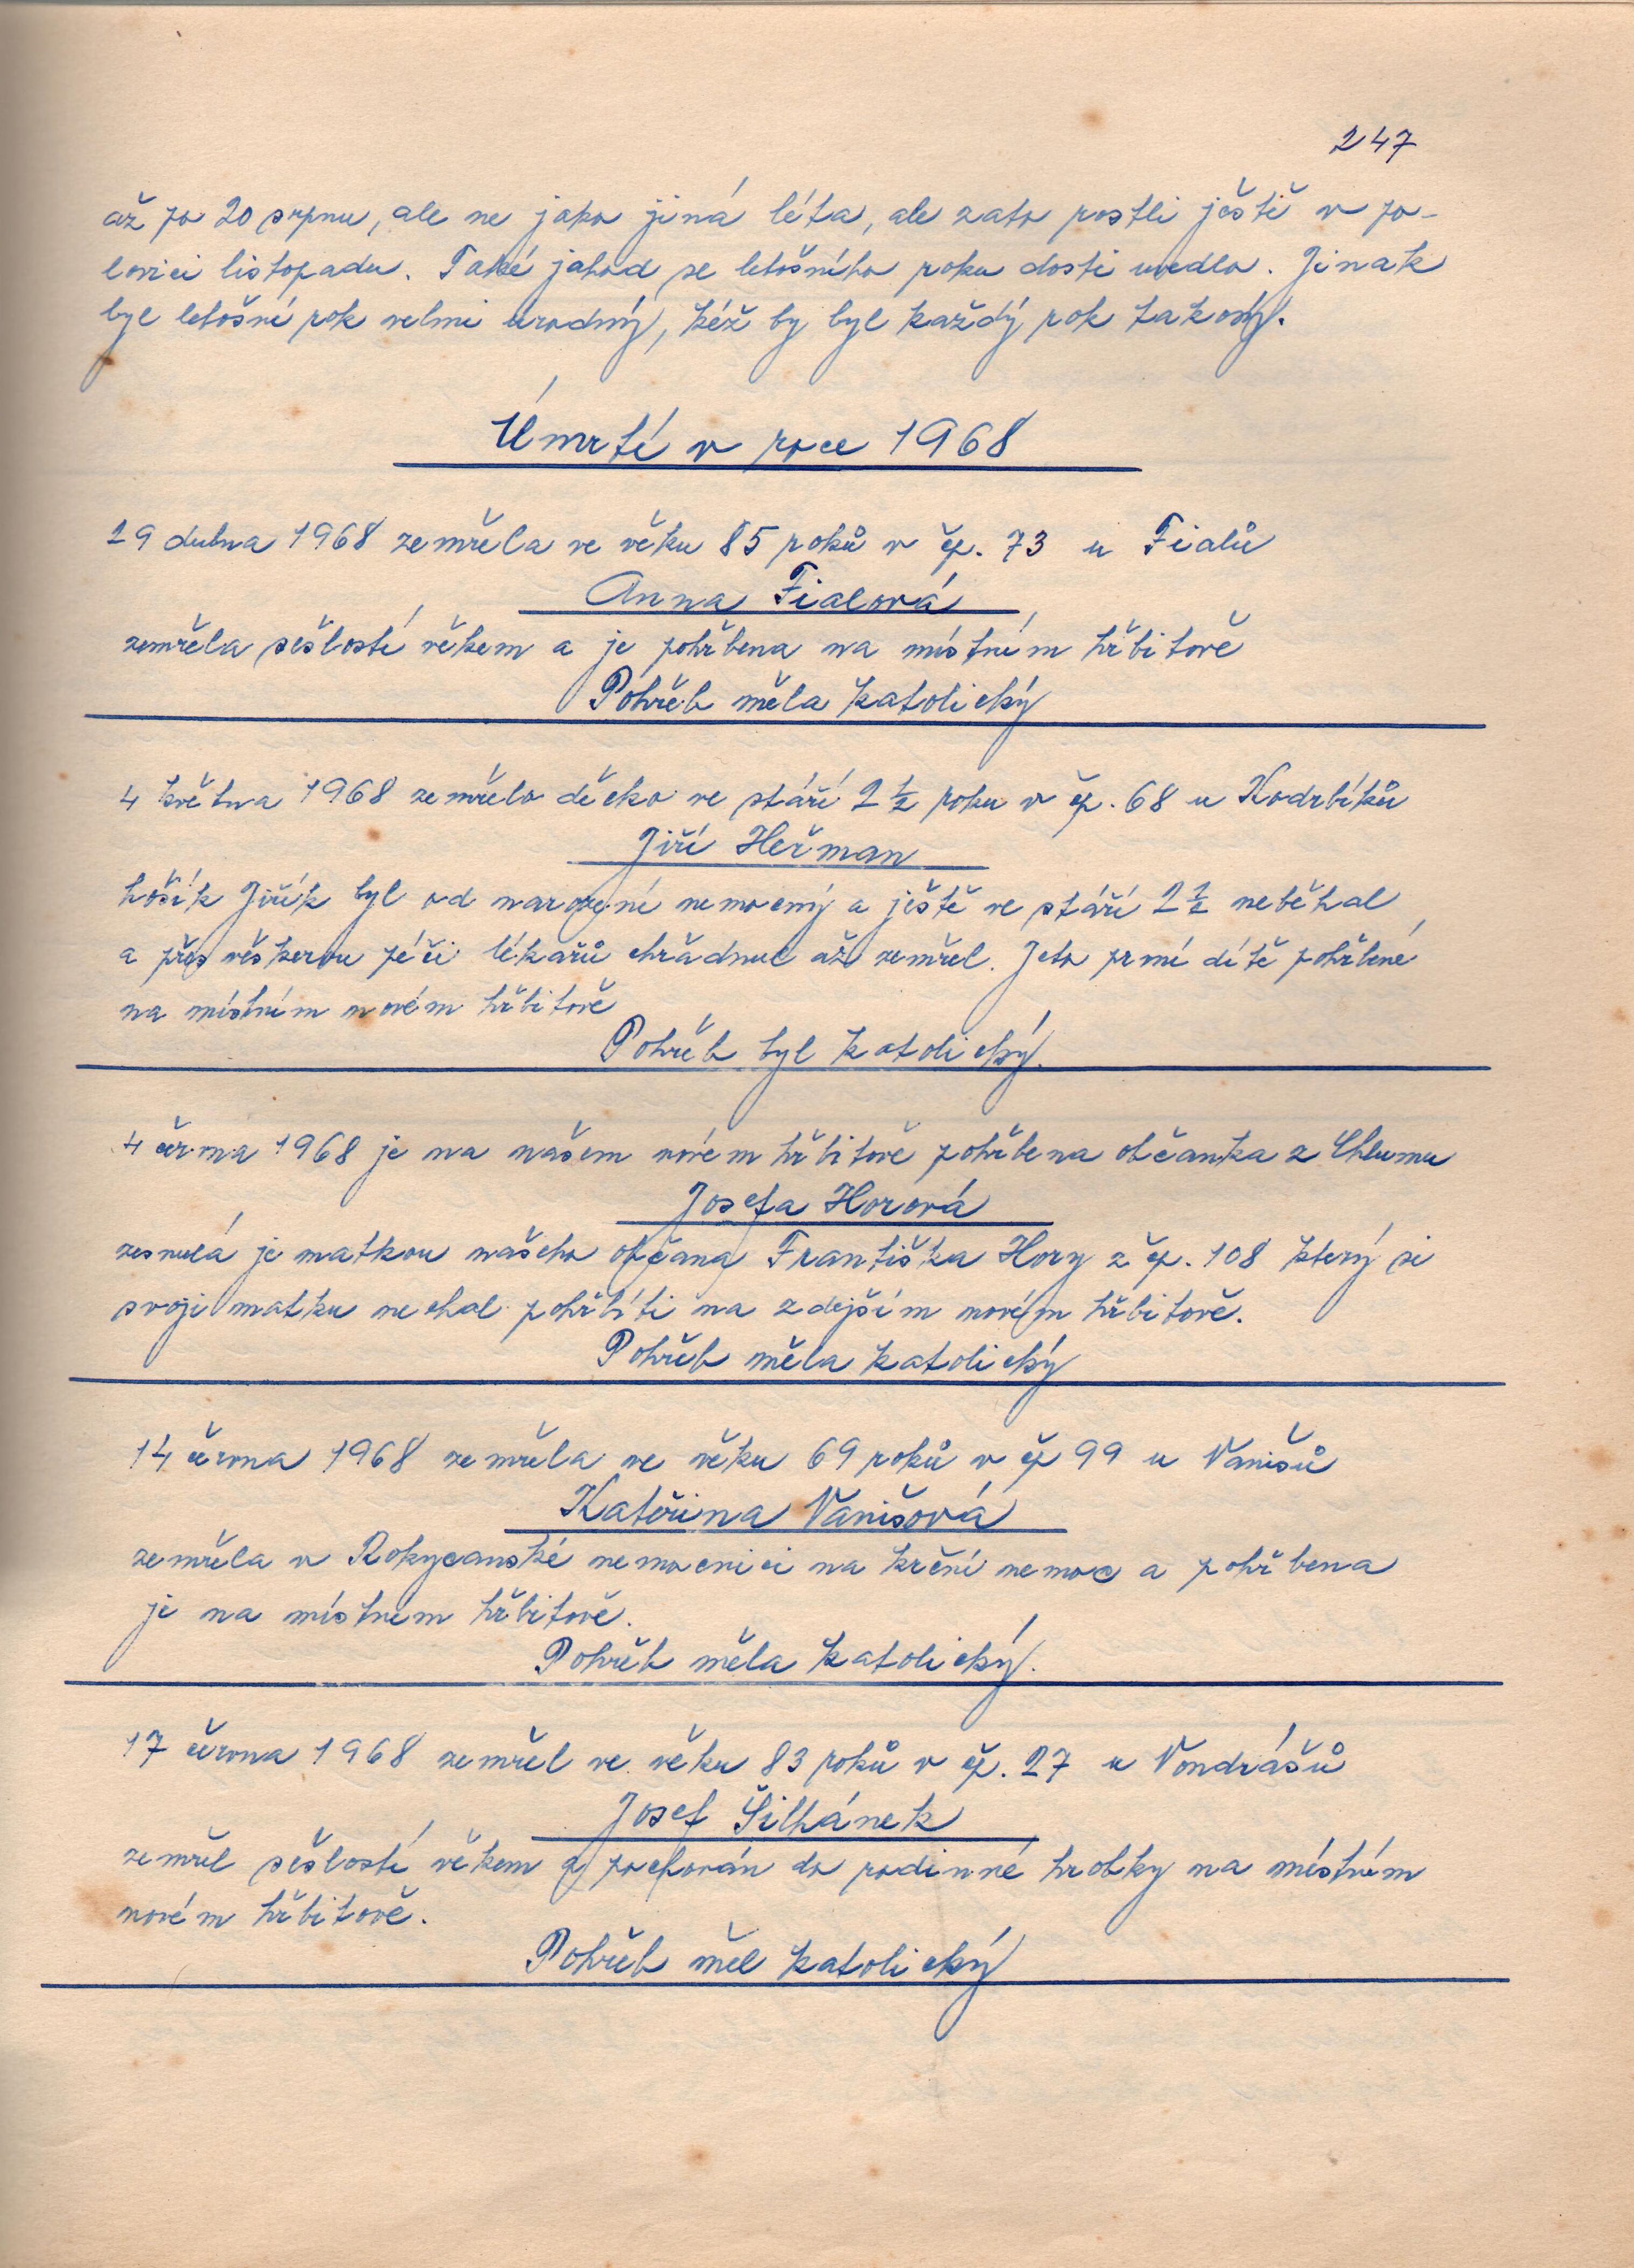 247
až po 20 srpnu, ale ne jako jiná léta, ale zato rostli ještě v po-
lovici listopadu. Také jahod se letošního roku dosti uvedlo. Jinak
byl letošní rok velmi úrodný, kéž by byl každý rok takový.
Úmrtí v roce 1968
29 dubna 1968 zemřela ve věku 85 roků v čp. 73 u Fialů
Anna Fialová
zemřela sešlostí věkem a je pohřbena na místním hřbitově
Pohřeb měla katolický
4 května 1968 zemřelo děcko ve stáří 2 ½ roku v čp. 68 u Kodrbíků
Jiří Heřman
hošík Jiřík byl od narození nemocný a ještě ve stáří 2 ½ neběhal
a přes veškerou péči lékařů chřadnul až zemřel. Jeto první dítě pohřbené
na místním novém hřbitově
Pohřeb byl katolický.
4 června 1968 je na našem novém hřbitově pohřbena občanka z Chlumu
Josefa Horová
zesnulá je matkou našeho občana Františka Hory z čp. 108 který si
svoji matku nechal pohřbíti na zdejším novém hřbitově.
Pohřeb měla katolický
14 června 1968 zemřela ve věku 69 roků v čp 99 u Vanišů
Kateřina Vanišová
zemřela v Rokycanské nemocnici na krční nemoc a pohřbena
je na místnem hřbitově.
Pohřeb měla katolický.
17 června 1968 zemřel ve věku 83 roků v čp. 27 u Vondrášů
Josef Šilhánek
zemřel sešlostí věkem a pochován do rodinné hrobky na místním
novém hřbitově.
Pohřeb měl katolický